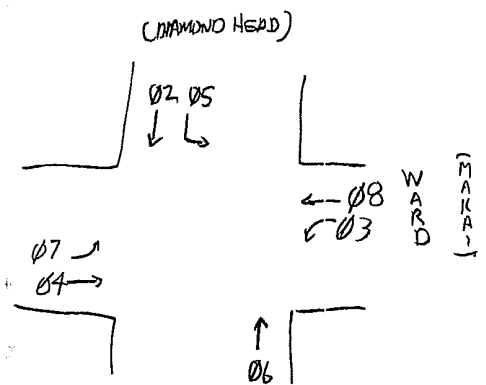 (DIAMOND HEAD)
Ø2 Ø5
Ø8
Ø3
WARD
(MAKAI)
Ø7
Ø4
Ø6